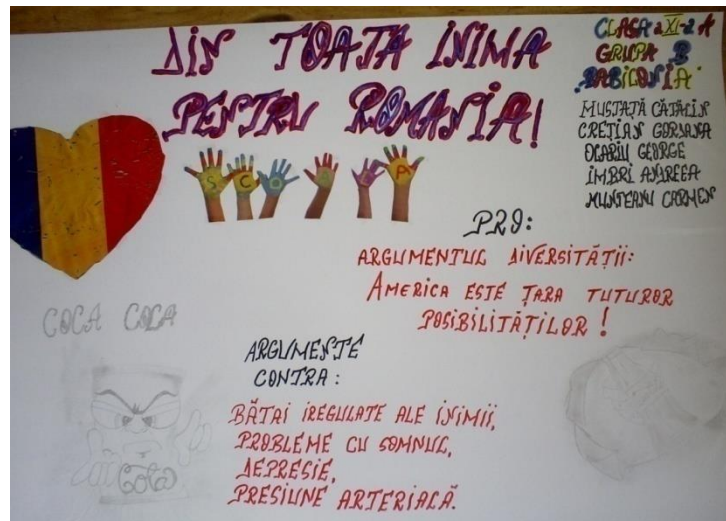 DIN TOATĂ INIMA
PENTRU ROMANIA!
CLASA a XI-a A
GRUPA B
BABILONIA
MUSTAȚĂ CĂTĂLIN
CREȚIAN GORDANA
OLARIU GEORGE
IMBRI ANDREEA
MUNTEANU CARMEN
ȘCOALA
PRO:
ARGUMENTUL DIVERSITĂȚII:
AMERICA ESTE ȚARA TUTUROR
POSIBILITĂȚILOR!
COCA COLA
ARGUMENTE
CONTRA:
BĂTĂI IREGULATE ALE INIMII,
PROBLEME CU SOMNUL,
DEPRESIE,
PRESIUNE ARTERIALĂ.
Cola